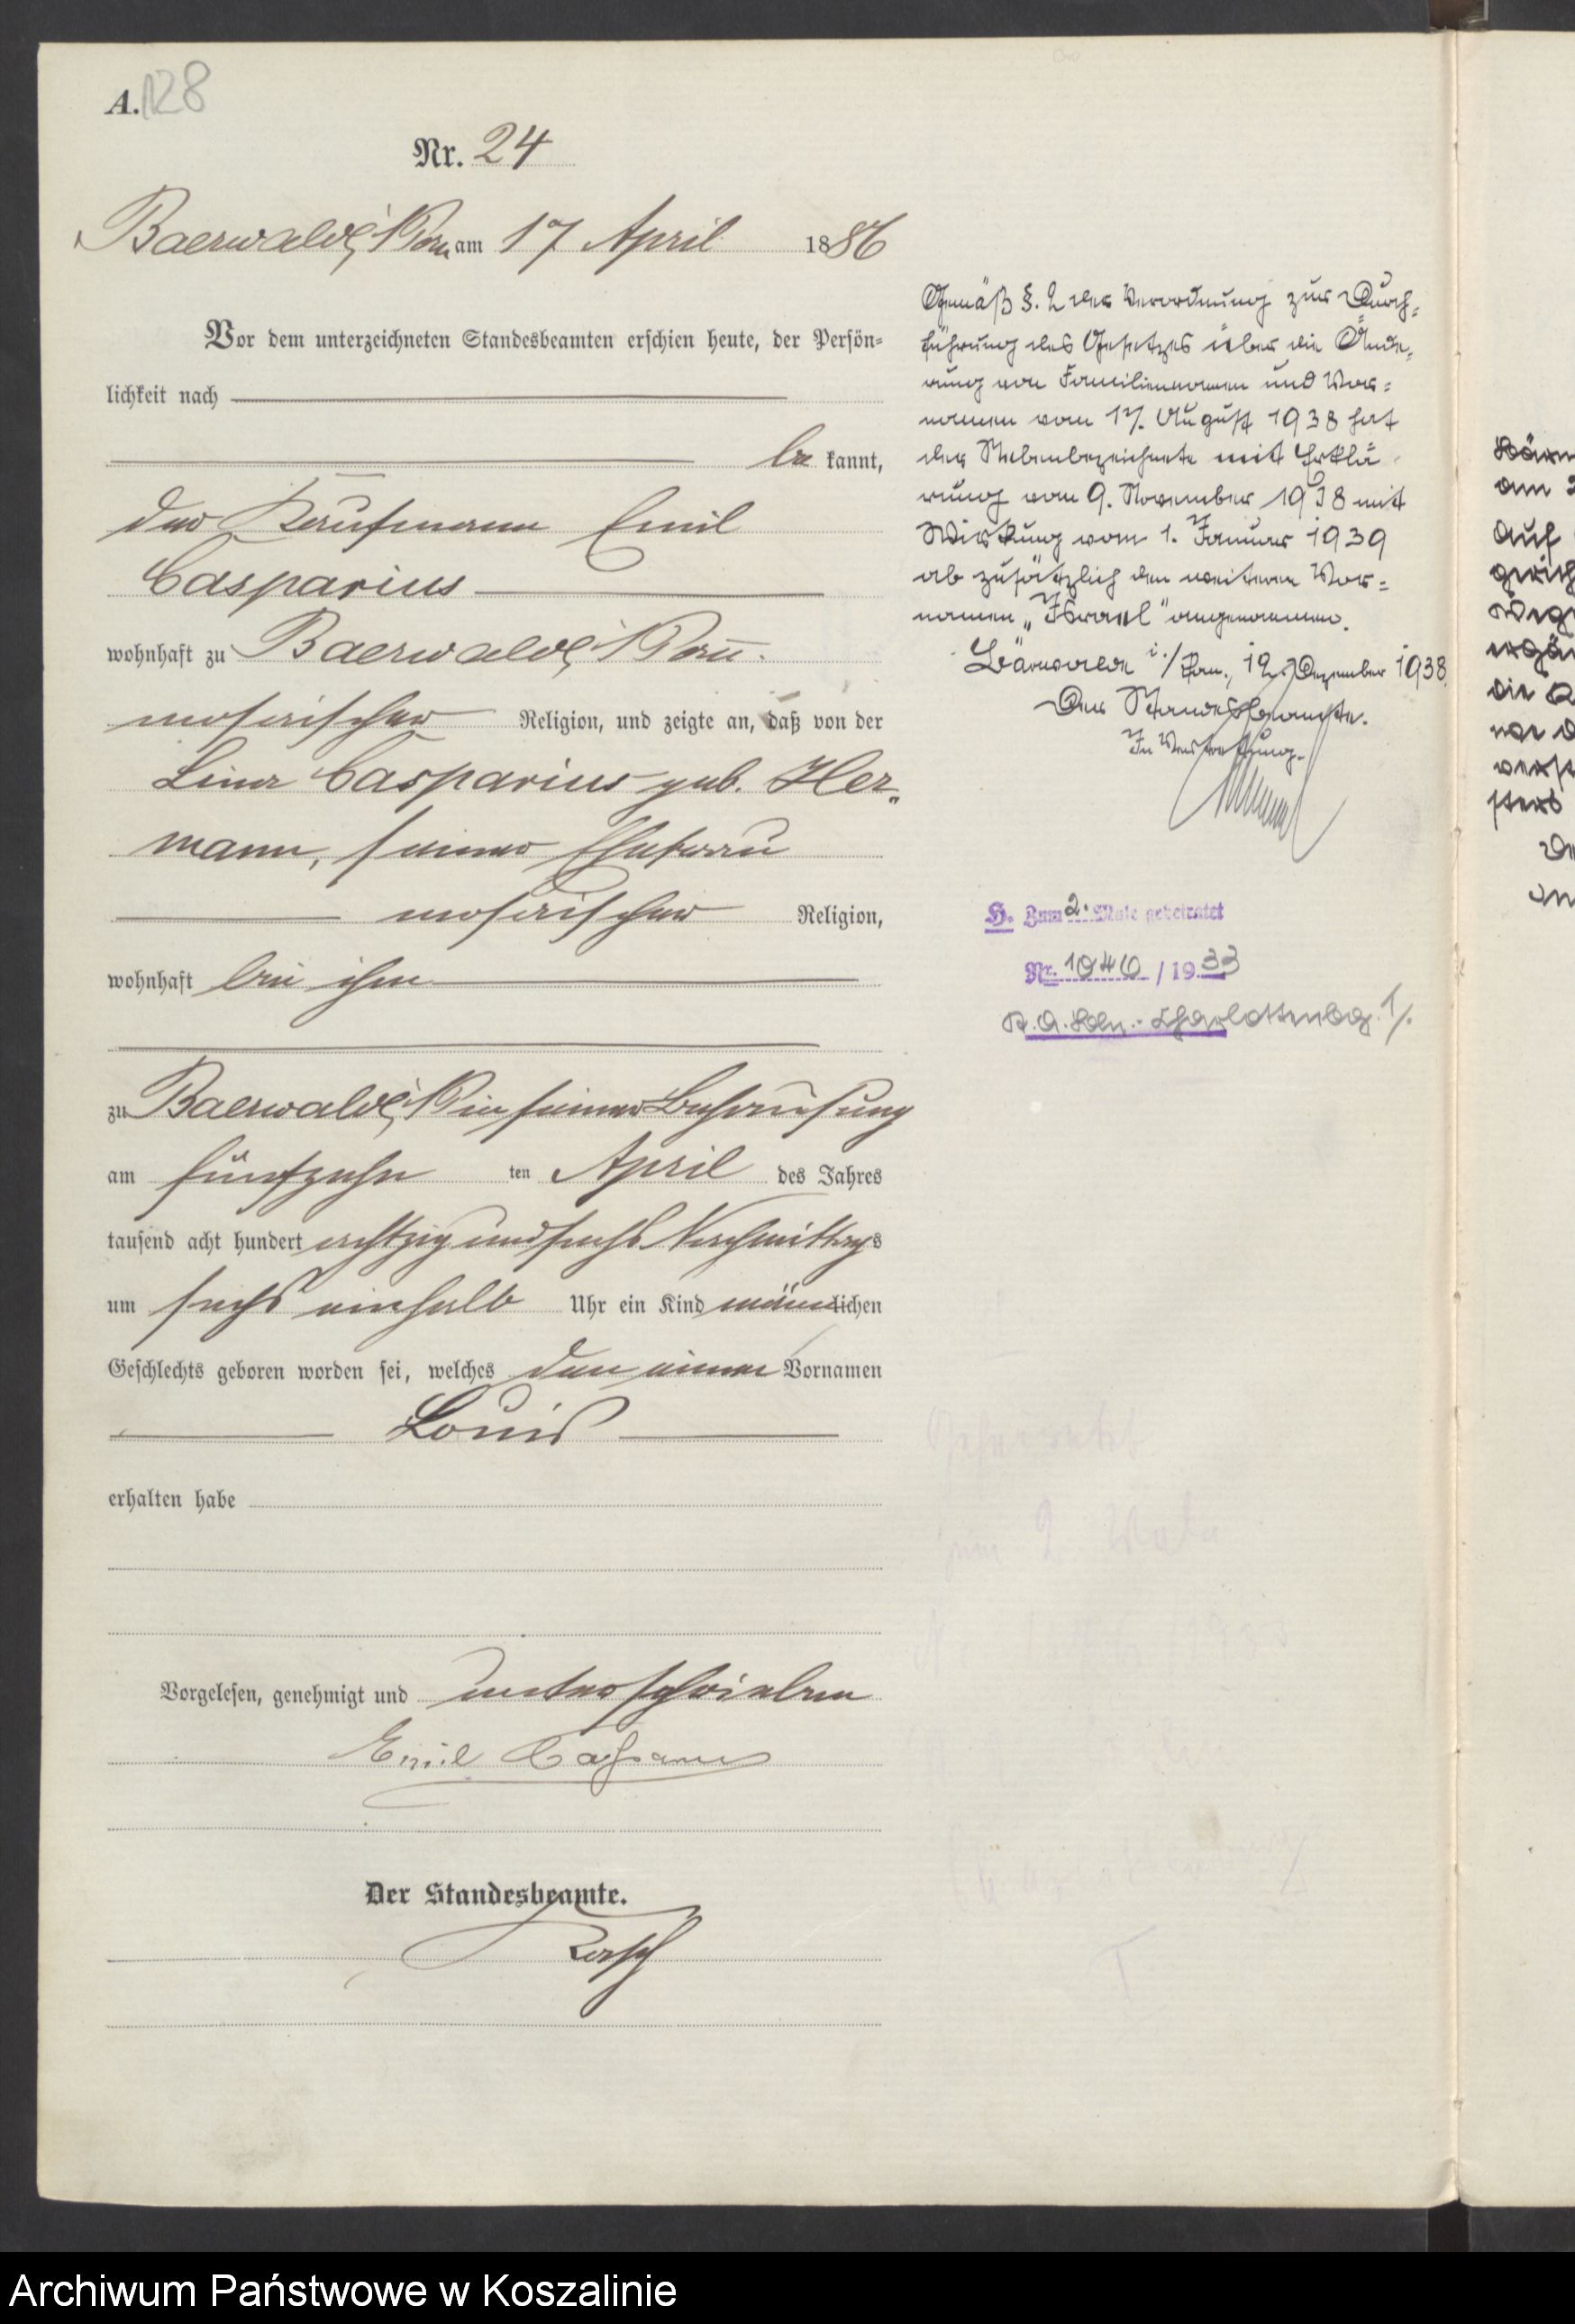 A. 128
Nr. 24
Baerwalde i/Pom am 17 April 1886
Vor dem unterzeichneten Standesbeamten erschien heute, der Persön=
lichkeit nach
be kannt,
der Kaufmann Emil
Casparius
wohnhaft zu Baerwalde i/Pom.
mosaischer Religion, und zeigte an, daß von der
Lina Casparius geb. Her-
mann, seiner Ehefrau
mosaischer Religion,
wohnhaft bei ihm
zu Baerwalde i/P in seiner Behausung
am fünfzehn ten April des Jahres
tausend acht hundert achtzig und sechs Nachmittags
um sechs einhalb Uhr ein Kind männlichen
Geschlechts geboren worden sei, welches den einen Vornamen
Louis
erhalten habe
Vorgelesen, genehmigt und unterschrieben
Emil Casparius
Der Standesbeamte.
Gemäß §. 2 der Verordnung zur Durch=
führung des Gesetzes über die Ände=
rung von Familiennamen und Vor=
namen vom 17. August 1938 hat
der Nebenbezeichnete mit Erklä
rung vom 9. November 1938 mit
Wirkung vom 1. Januar 1939
ab zusätzlich den weiteren Vor=
namen „Israel" angenommen.
Bärwalde i./Pom., 12. Dezember 1938.
Der Standesbeamte.
In Vertretung.
H. Zum 2. Male geheiratet
Nr. 1040 / 1933
St. A. Bln.-Charlottenbg. I/.
Auf
Archiwum Państwowe w Koszalinie